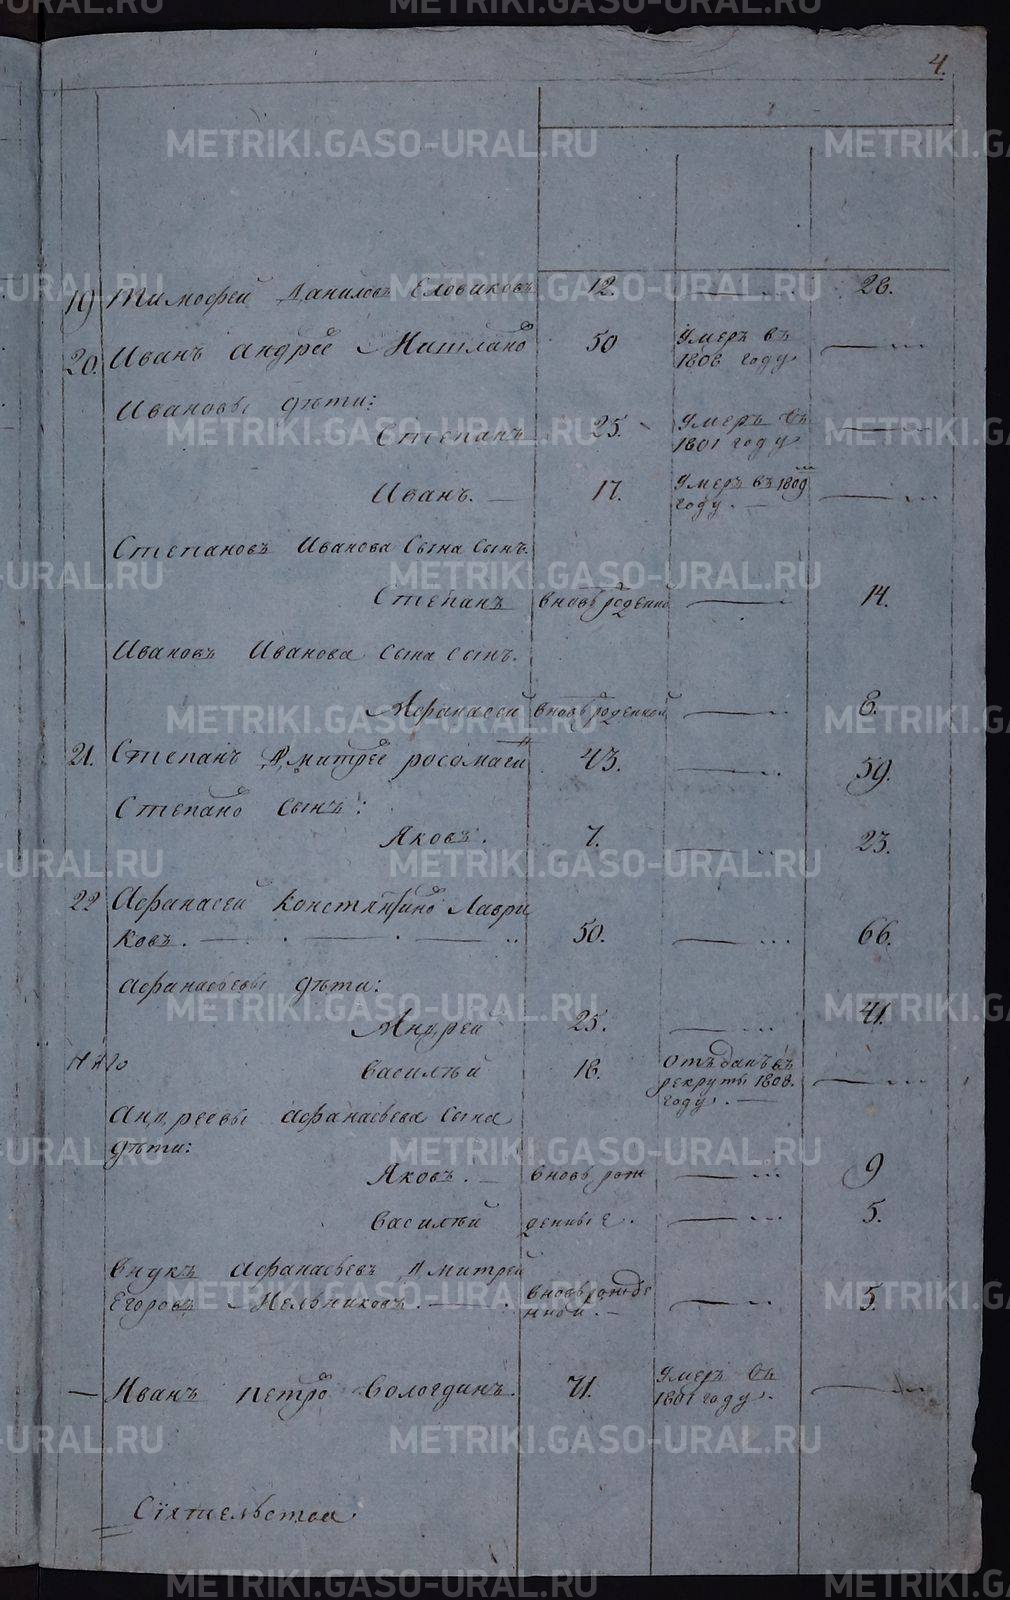 4.
19 Тимофей Даниловъ Еловиковъ 12. 28.
20. Иванъ Андрее 50 Умеръ въ
1808 году
Ивановы дѣти:
Степанъ 25. Умеръ въ
1801 году
Иванъ. 17. Умеръ въ 1809
году.
Степановъ Иванова сына сынъ.
Степанъ вновь роденно 14.
Ивановъ Иванова сына сынъ.
Афанасей вновь роденной 8.
21. Степанъ Дмитрее росомаги 43. 59.
Степано сынъ:
Яковъ. 7. 23.
22 Афанасей Константино Лаври
ковъ. 50. 66.
Афанасьевы дѣти:
Андрей 25. 41.
Василѣй 18. Отъданъ въ
рекруты 1808.
году.
Андреевы Афанасьева сына
дѣти:
Яковъ. вновь рож 9
Василѣй денные. 5.
Внукъ Афанасьевъ Дмитрей
Егоровъ Мельниковъ. вновь рожде
нной. 5.
Иванъ Петро Вологдинъ. 71. Умеръ въ
1801 году.
Сіятельства
METRIKI.GASO-URAL.RU